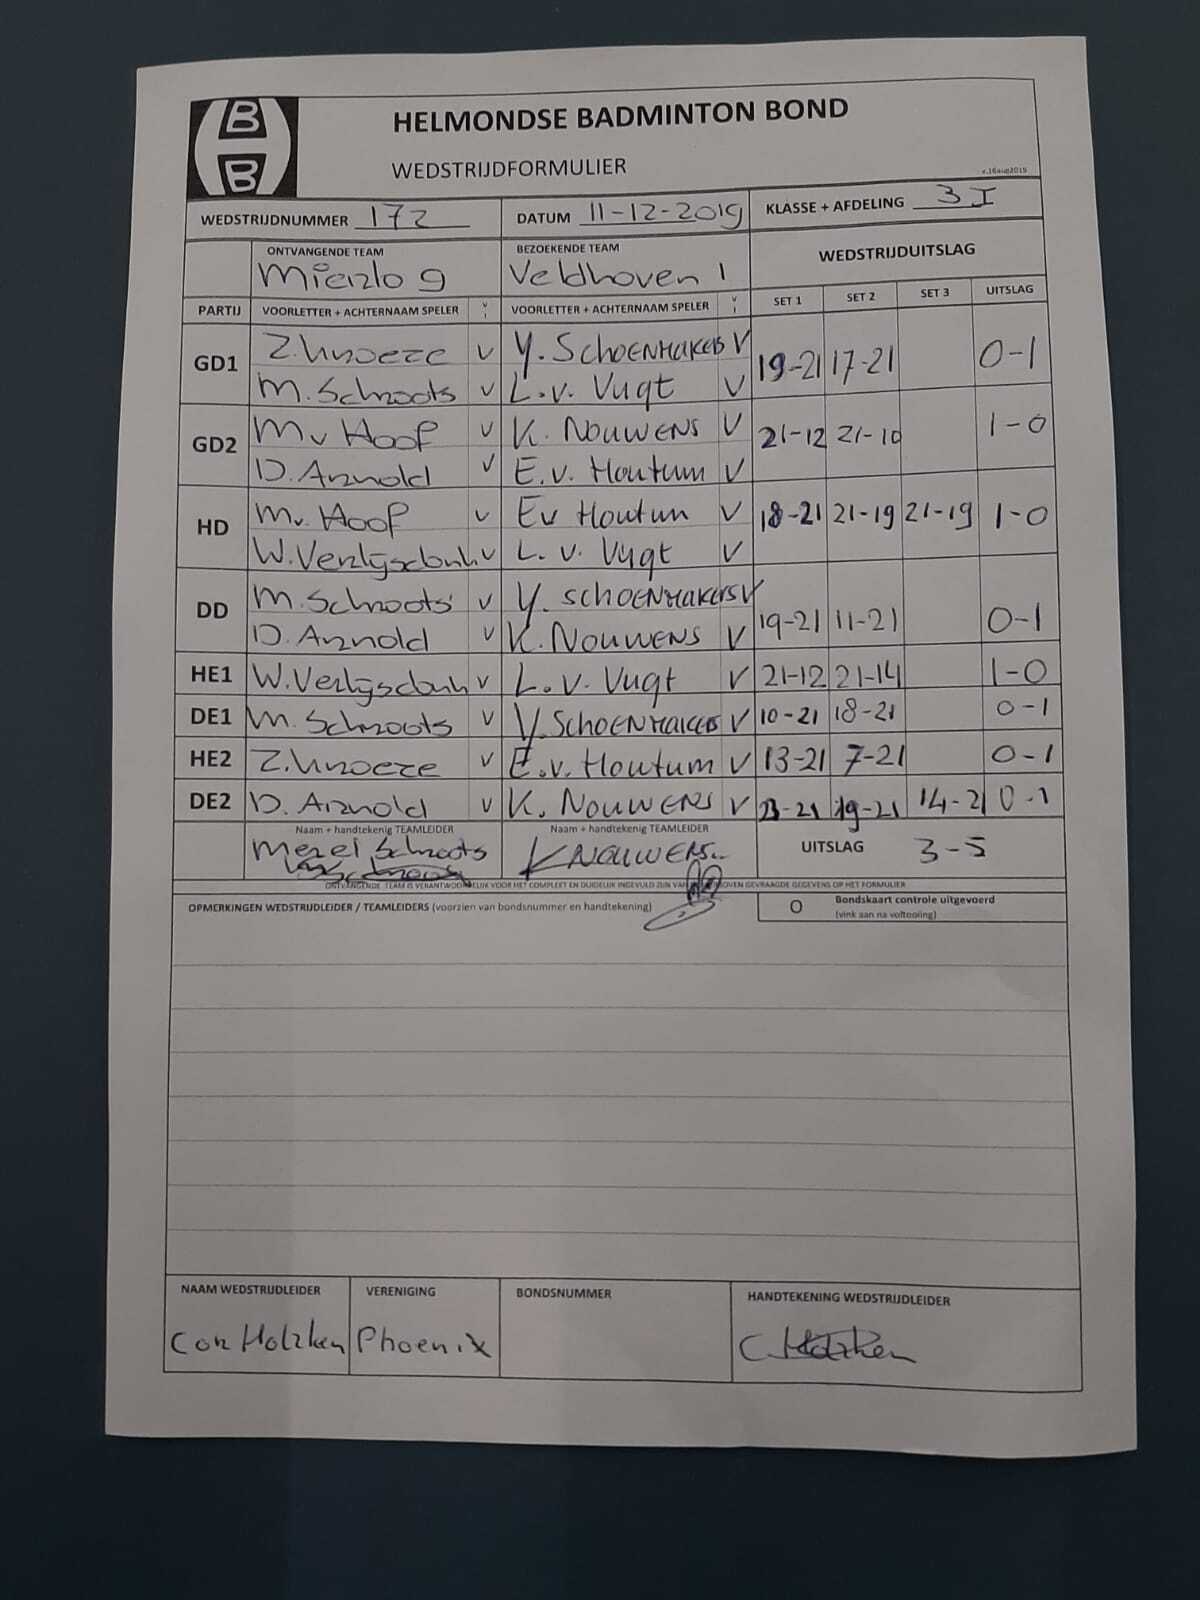 B
B
HELMONDSE BADMINTON BOND
WEDSTRIJDFORMULIER
v.16aug2019
WEDSTRIJDNUMMER 172 DATUM 11-12-2019 KLASSE + AFDELING 3 I
ONTVANGENDE TEAM BEZOEKENDE TEAM WEDSTRIJDUITSLAG
Mierlo 9 Veldhoven 1
PARTIJ VOORLETTER + ACHTERNAAM SPELER V I VOORLETTER + ACHTERNAAM SPELER V I SET 1 SET 2 SET 3 UITSLAG
GD1 v Y. SCHOENMAKERS V 19-21 17-21 0-1
M. Schroots v L.v. Vugt V
GD2 M v Hoof v K. NOUWENS V 21-12 21-10 1-0
D. Arnold v E.v. Houtum V
HD M v. Hoof v E v Houtum V 18-21 21-19 21-19 1-0
v L. v. Vugt V
DD M. Schroots v Y. SCHOENMAKERS V 19-21 11-21 0-1
D. Arnold v K. NOUWENS V
HE1 v L. v. Vugt V 21-12 21-14 1-0
DE1 M. Schroots v Y. SCHOENMAKERS V 10-21 18-21 0-1
HE2 v E.v. Houtum V 13-21 7-21 0-1
DE2 D. Arnold v K. NOUWENS V 23-21 19-21 14-21 0-1
Naam + handtekenig TEAMLEIDER Naam + handtekenig TEAMLEIDER UITSLAG 3-5
Merel Schroots K NOUWENS
ONTVANGENDE TEAM IS VERANTWOORDELIJK VOOR HET COMPLEET EN DUIDELIJK INGEVULD ZIJN VAN GEVRAAGDE GEGEVENS OP HET FORMULIER
OPMERKINGEN WEDSTRIJDLEIDER / TEAMLEIDERS (voorzien van bondsnummer en handtekening) O Bondskaart controle uitgevoerd
(vink aan na voltooiing)
NAAM WEDSTRIJDLEIDER VERENIGING BONDSNUMMER HANDTEKENING WEDSTRIJDLEIDER
Cor Holzken Phoenix C. Holzken